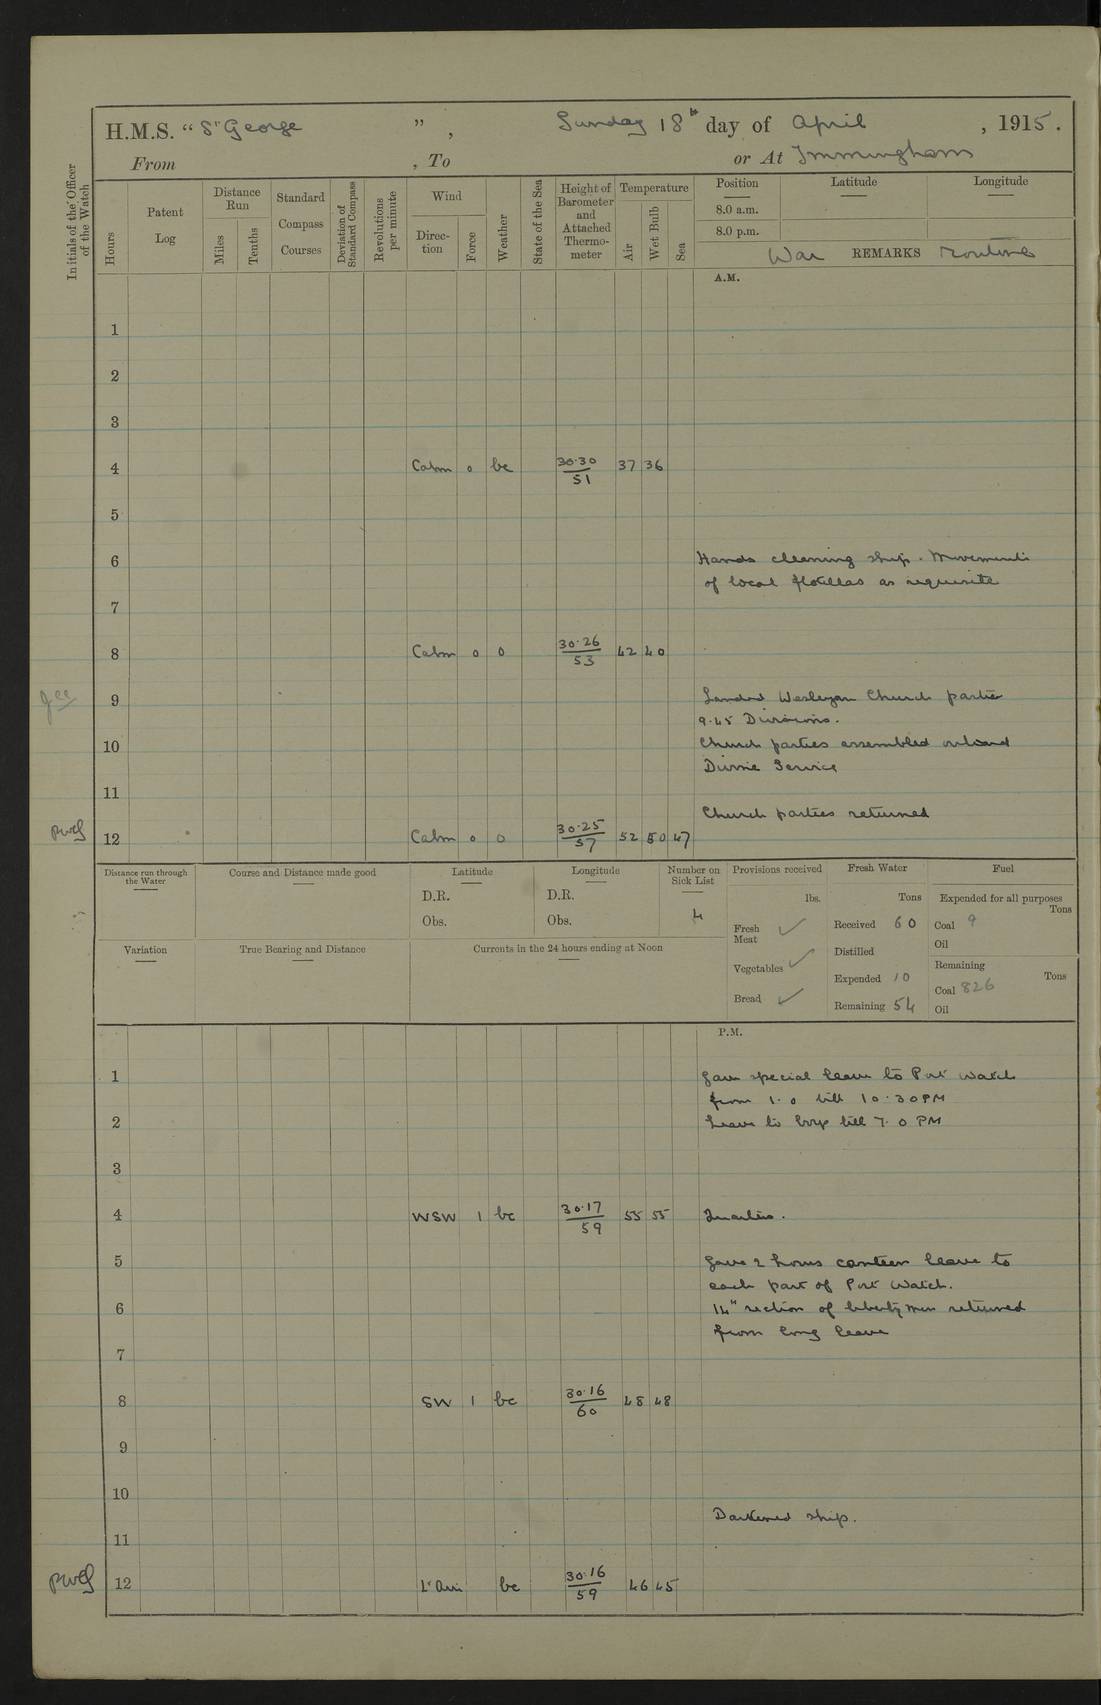 H.M.S. “ St George ” , Sunday 18th day of April , 1915.
From , To or At Immingham
Initials of the Officer of the Watch
Hours
Patent Log
Distance Run
Miles
Tenths
Standard Compass Courses
Deviation of Standard Compass
Revolutions per minute
Wind
Direction
Force
Weather
State of the Sea
Height of Barometer and Attached Thermometer
Temperature
Air
Wet Bulb
Sea
Position Latitude Longitude
8.0 a.m.
8.0 p.m.
War REMARKS Routine
A.M.
1
2
3
4 Calm 0 bc 30·30 51 37 36
5
6 Hands cleaning ship. Movements
of local flotillas as requisite
7
8 Calm 0 0 30·26 53 42 40
9 Landed Wesleyan Church parties
9.45 Divisions.
10 Church parties assembled onboard
Divine Service
11
Church parties returned
12 Calm 0 0 30·25 57 52 50 47
Distance run through the Water
Course and Distance made good
Latitude
D.R.
Obs.
Longitude
D.R.
Obs.
Number on Sick List
4
Provisions received
lbs.
Fresh Meat ✓
Vegetables ✓
Bread ✓
Fresh Water
Tons
Received 60
Distilled
Expended 10
Remaining 54
Fuel
Expended for all purposes
Tons
Coal 9
Oil
Remaining
Tons
Coal 826
Oil
Variation
True Bearing and Distance
Currents in the 24 hours ending at Noon
P.M.
1 Gave special leave to Port Watch
from 1.0 till 10.30 PM
2 Leave to boys till 7.0 PM
3
4 WSW 1 bc 30·17 59 55 55 Quarters.
5 Gave 2 hours canteen leave to
each part of Port Watch.
6 14th section of liberty men returned
from long leave
7
8 SW 1 bc 30·16 60 48 48
9
10
Darkened ship.
11
12 Lt Airs bc 30·16 59 46 45